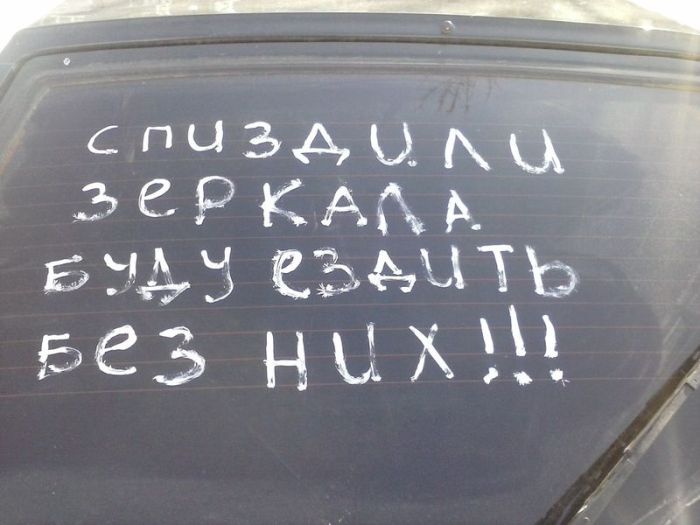 спиздили
зеркала
буду ездить
без них!!!